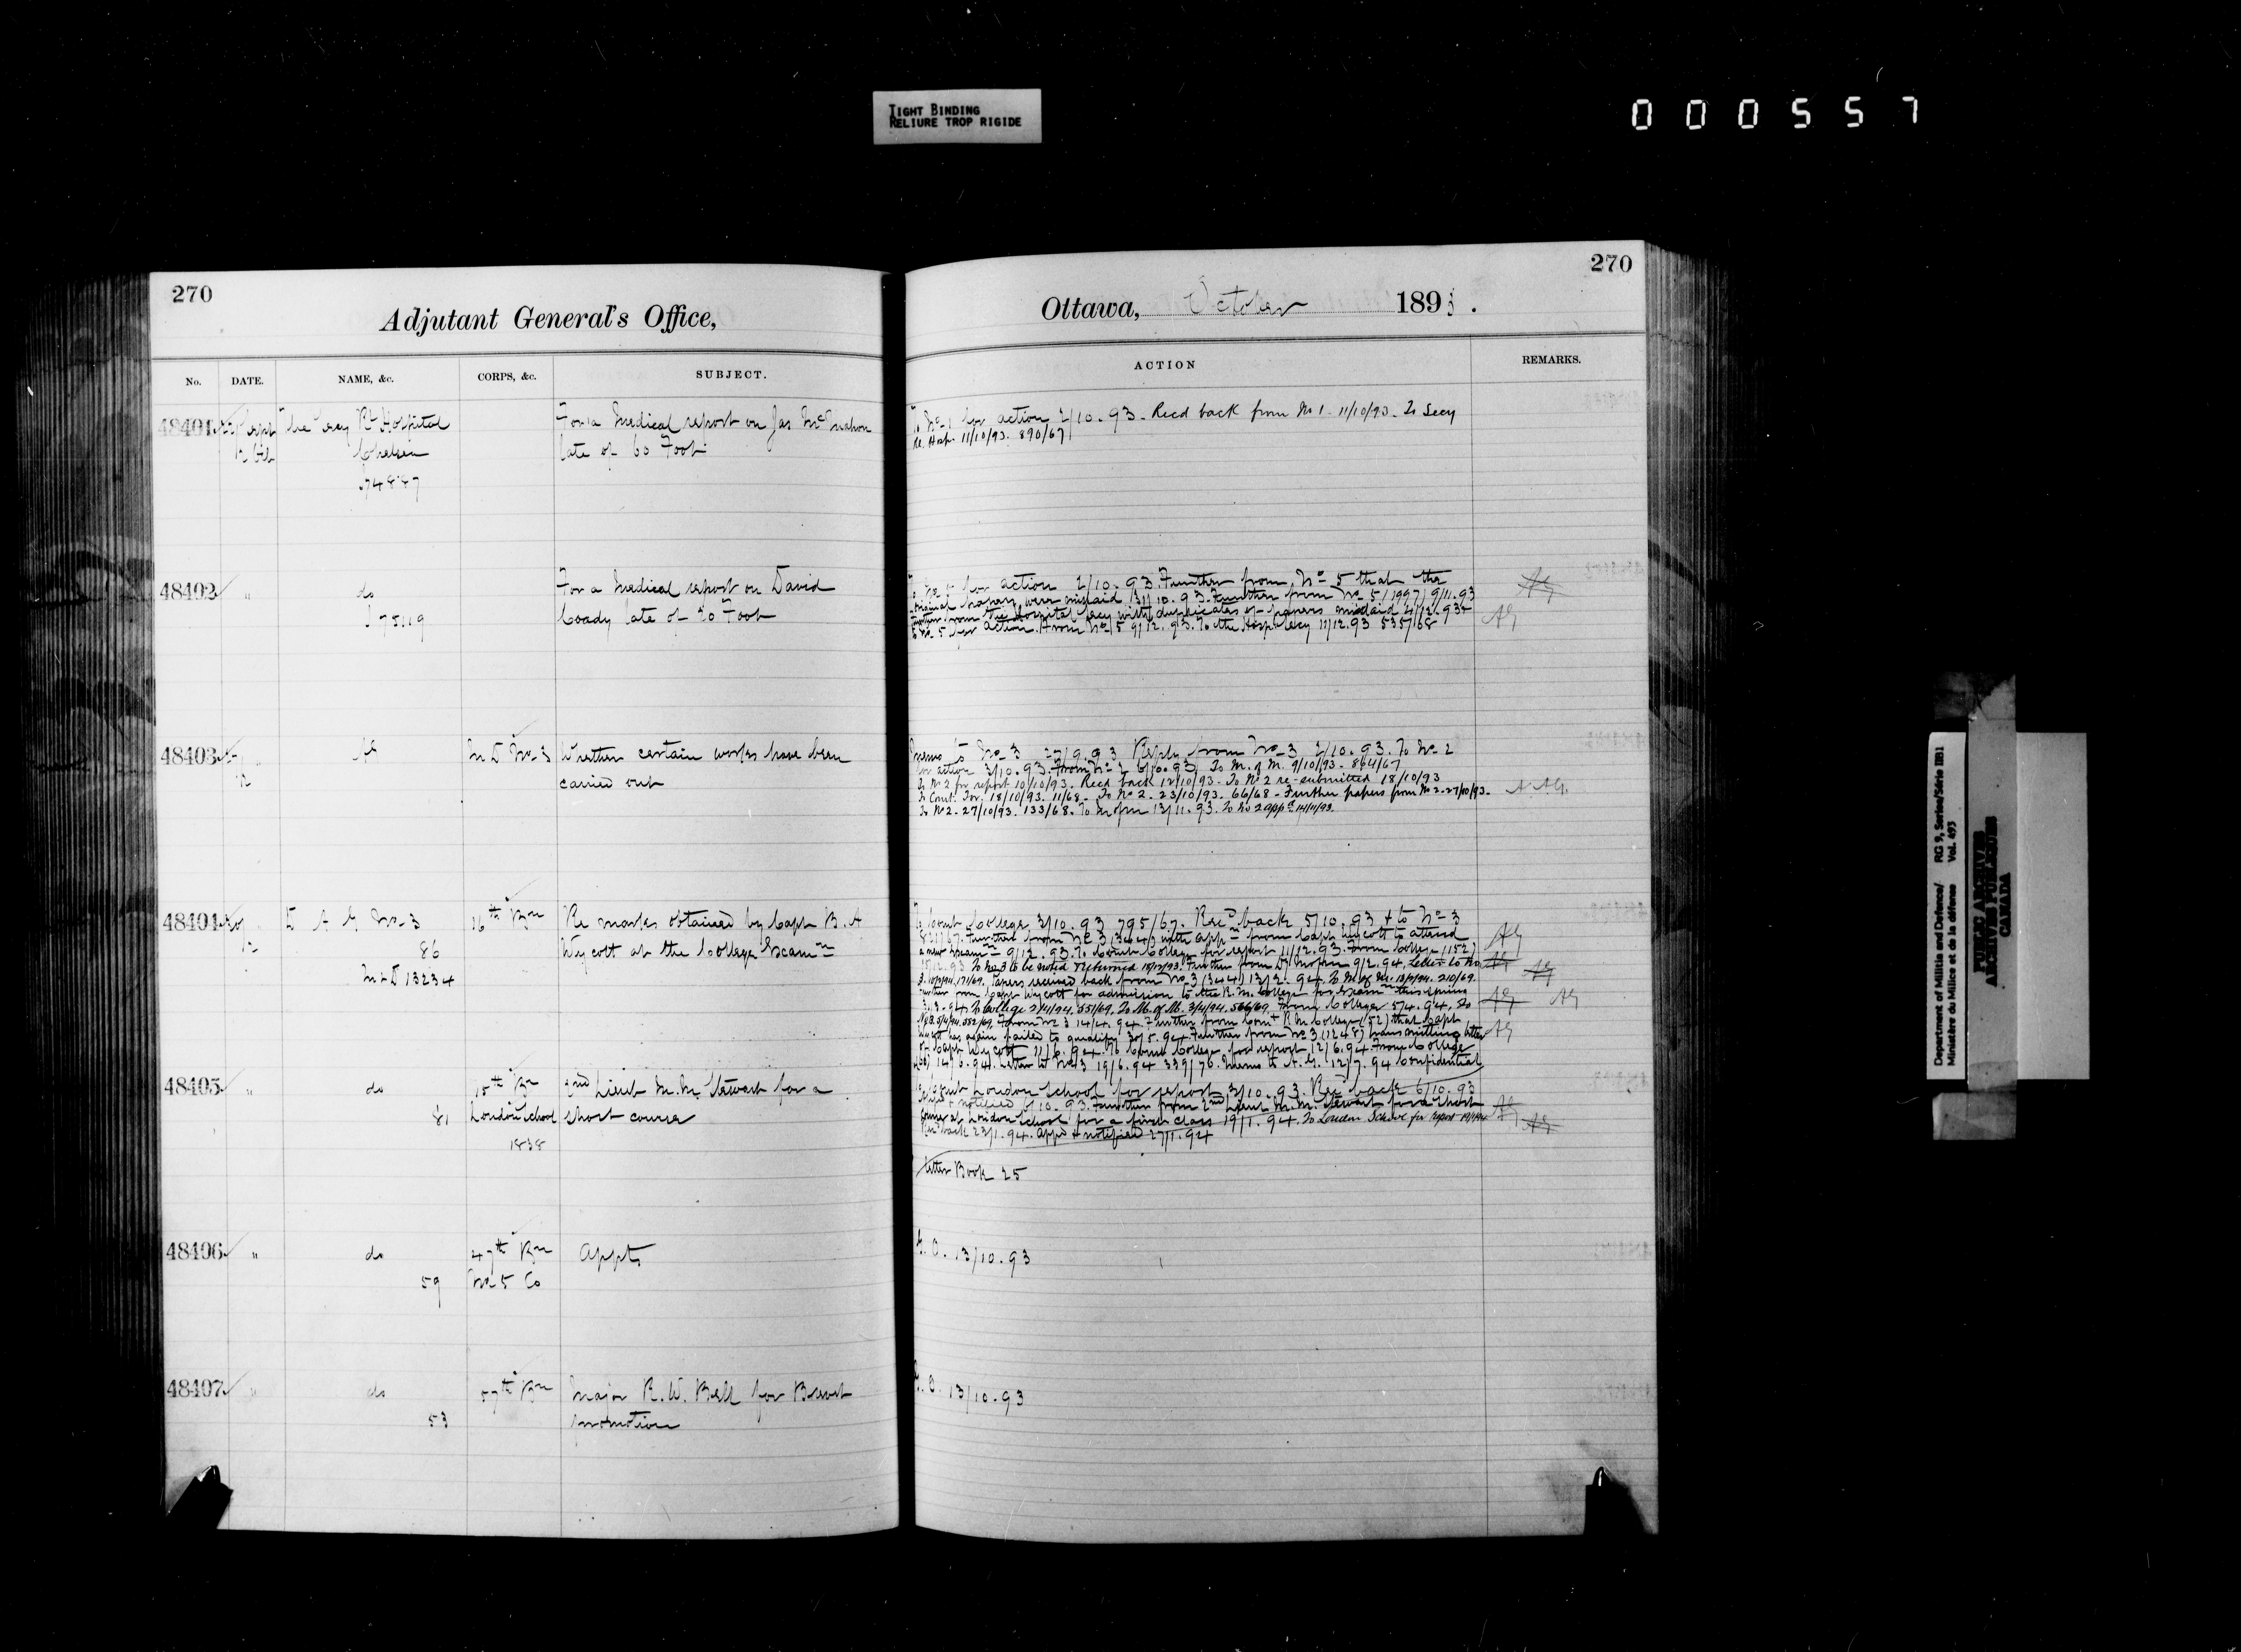 TIGHT BINDING
RELIURE TROP RIGIDE
000557
270
270
Adjutant General's Office,
Ottawa, October 1893.
No. DATE. NAME, &c. CORPS, &c. SUBJECT.
ACTION REMARKS.
48401 Sept The Secy Rl Hospital
Chelsea
For a Medical report on Jas McMahon
late of 60 Foot
To No 1 for action 2/10.93. Recd back from No 1 - 11/10/93. To Secy
Rl. Hosp. 11/10/93. 890/67
48402 " do
75119
For a Medical report on David
Coady late of 20 Foot
To No 5 for action 2/10.93. Further from No 5 that the
original papers were mislaid 31/10.93. Further from No 5/1997/9/11.93
Further from the Hospital Secy with duplicates of papers mislaid 4/12.93
to No. 5 for action. From No 5 9/12.93. To the Hosp Secy 11/12.93 535/68
AG
AG
48403 "
M D No 3
Whether certain works have been
carried out
Memo to No 3 27/9.93 Reply from No 3 2/10.93. To No 2
for action 3/10.93. From No 2 6/10.93. To M. of M. 9/10/93 - 864/67
To No 2 for report 10/10/93. Recd back 12/10/93. To No 2 re-submitted 18/10/93
18/10/93. 11/68 - To No 2 - 23/10/93. 66/68 - Further papers from No 2 - 27/10/93.
To No 2 - 27/10/93. 133/68. To M of M 13/11.93. To No 2 appd 14/11/93.
A AG.
48404
D A G No 3
86
M & D 13234
26th Bn
Re marks obtained by Capt B. A
Wycott at the College Examn
To Comt College 3/10.93 795/67. Recd back 5/10.93 & to No 3
821/67. Further from No 3 (3044) with appn from Capt Wycott to attend
a new Examn 9/12.93. To Comt College for report 11/12.93. From College (152)
15/12.93 To No 3 to be noted & returned 18/12/93. Further from Dr 9/2.94. Letter to No
3. 10/2/94. 171/69. Papers received back from No 3 (3044) 13/2.94. To M. of M. 13/2/94. 210/69.
Further from Capt Wycott for admission to the R. M. College for Examn this spring
To College 2/4/94. 551/69. To M. of M. 3/4/94. 566/69. From College 5/4.94. To
No 3. 5/4/94. 582/69. From No 3 14/4.94. Further from Comt R M College (52) that Capt
Wycott has again failed to qualify 30/5.94. Further from No 3 (1248) transmitting letter
of Capt Wycott 11/6.94. To Comt College for report 12/6.94. From College
14/6.94. Letter to No 3 19/6.94 339/70. Memo to A. G. 12/7.94 Confidential
AG
AG
AG
AG AG
AG
48405 " do
81
London School
1838
2nd Lieut M. M. Stewart for a
short course
To Comt London School for report 3/10.93. Recd back 6/10.93
notified 6/10.93. Further from 2nd Lieut M. M. Stewart for a short
course at London School for a first class 19/1.94. To London School for report 19/1/94.
Recd back 23/1.94. Appd & notified 27/1.94
Letter Book 25
AG
AG
48406 " do
59
47th Bn
No 5 Co
Appts
G. O. 13/10.93
48407 " do
53
57th Bn
Major R. W. Bell for Brevet
promotion
G. O. 13/10.93
Department of Militia and Defence/ RG 9, Series/Série IIB1
Ministère du Milice et de la défense Vol. 493
PUBLIC ARCHIVES
ARCHIVES PUBLIQUES
CANADA